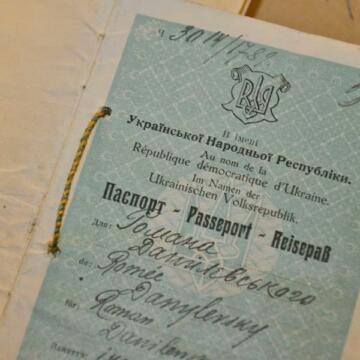 Ч. 3014/1789.
В імені
Української Народньої Республіки.
Au nom de la
République démocratique d'Ukraine.
Im Namen der
Ukrainischen Volksrepublik.
Паспорт - Passeport - Reisepaß
Для: Романа
Данилевського
de: Romée
Danylevsky
für: Roman